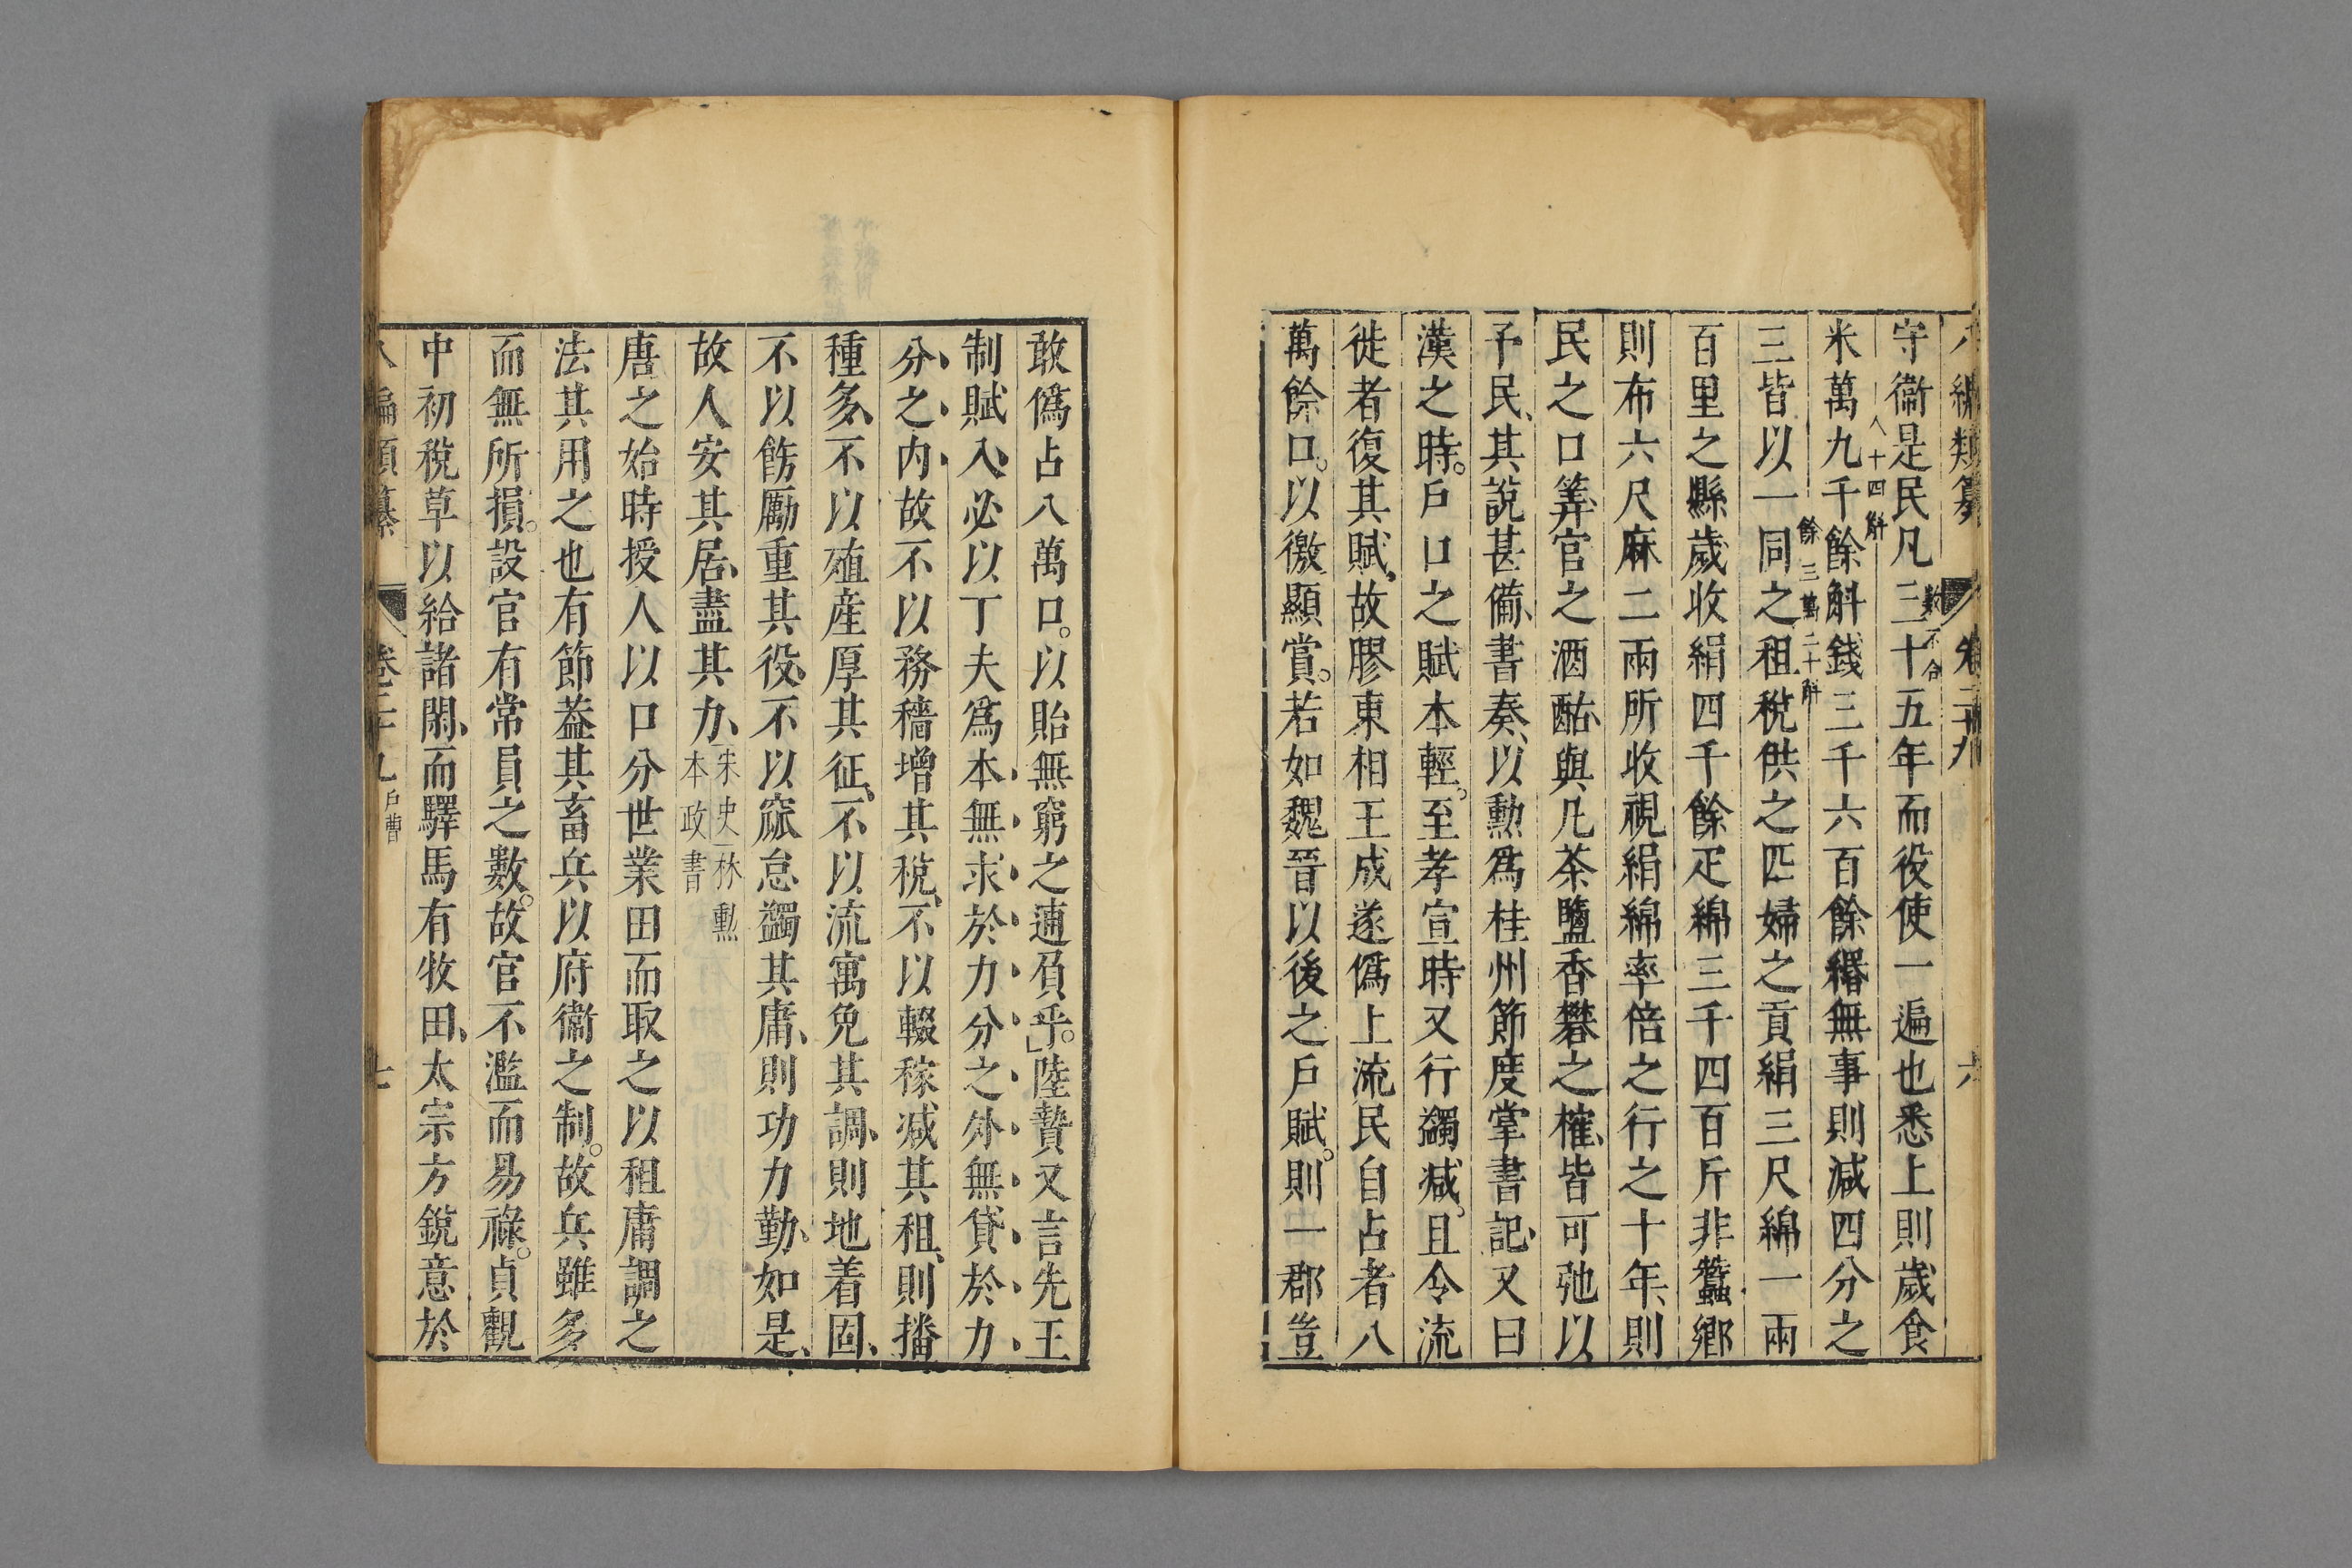 八編類纂 卷二十九 六
守衞是民凡三十五年而役使一遍也悉上則歲食
數不合
米萬九千餘斛錢三千六百餘緡無事則減四分之
八十四斛
三皆以一同之租稅供之匹婦之貢絹三尺綿一兩
餘三萬二十斛
百里之縣歲收絹四千餘疋綿三千四百斤非蠶鄉
則布六尺麻二兩所收視絹綿率倍之行之十年則
民之口筭官之酒酤與凡茶鹽香礬之榷皆可弛以
予民其說甚備書奏以勲爲桂州節度掌書記又曰
漢之時戶口之賦本輕至孝宣時又行蠲减且令流
徙者復其賦故膠東相王成遂僞上流民自占者八
萬餘口以徼顯賞若如魏晉以後之戶賦則一郡豈
敢僞占八萬口以貽無窮之逋負乎陸贄又言先王
制賦入必以丁夫爲本無求於力分之外無貸於力
分之內故不以務穡增其稅不以輟稼减其租則播
種多不以殖產厚其征不以流寓免其調則地着固
不以飭勵重其役不以窳怠蠲其庸則功力勤如是
故人安其居盡其力
宋史林勲
本政書
唐之始時授人以口分世業田而取之以租庸調之
法其用之也有節葢其畜兵以府衞之制故兵雖多
而無所損設官有常員之數故官不濫而易祿貞觀
中初稅草以給諸閑而驛馬有牧田太宗方銳意於
八編類纂 卷二十九 戶曹 七